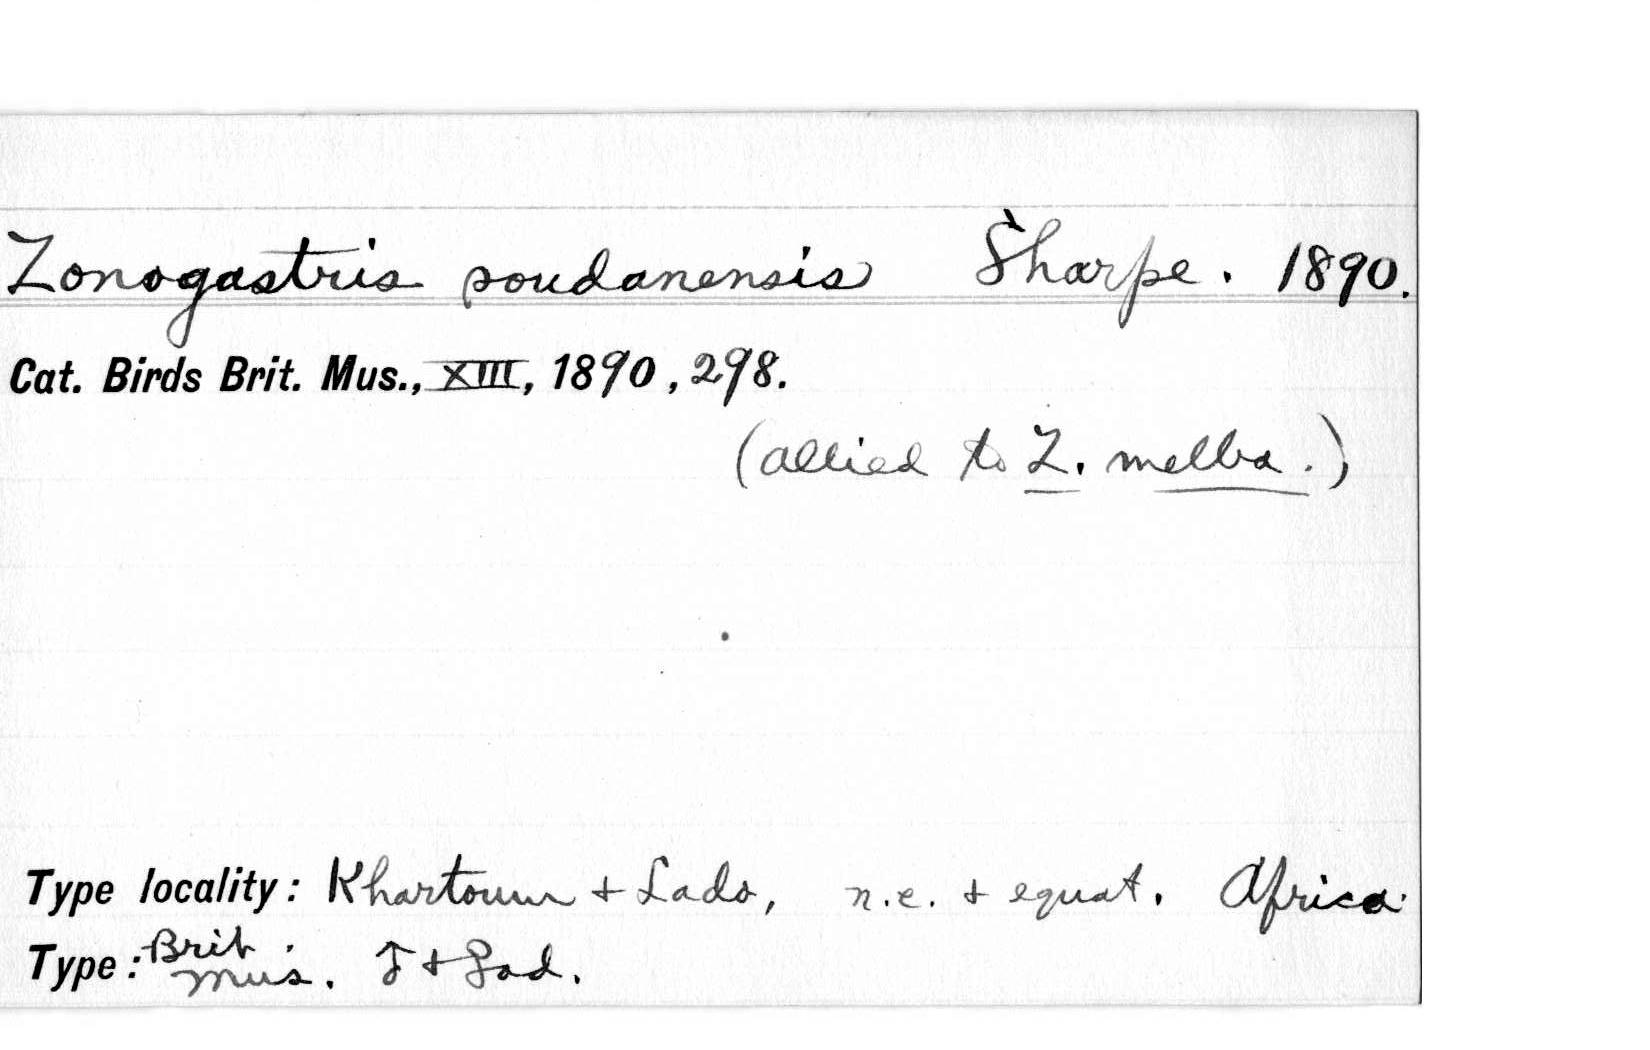 Zonogastris soudanensis Sharpe. 1890.
Cat. Birds Brit. Mus., XIII, 1890, 298.
(allied to Z. melba.)
Type locality: Khartoum + Lado, n.e. + equat. Africa.
Type: Brit. Mus. ♂ + ad.